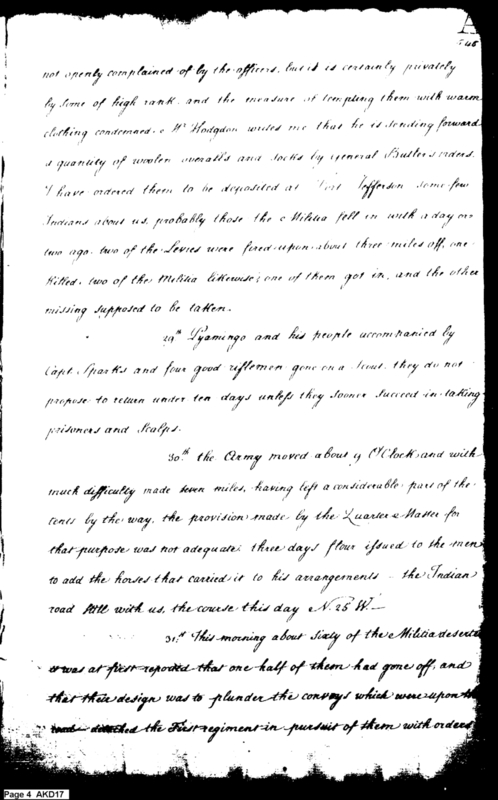 A
146
not openly complained of by the officers, but it is certainly privately
by some of high rank and the measure of tempting them with warm
clothing condemned. Mr Hodgdon writes me that he is sending forward
a quantity of woolen overalls and socks by general Butlers orders.
I have ordered them to be deposited at Fort Jefferson some few
Indians about us, probably those the Militia fell in with a day or
two ago. two of the Levies were fired upon about three miles off, one
killed, two of the Militia likewise; one of them got in, and the other
missing supposed to be taken.
29th Pyamingo and his people accompanied by
Capt. Sparks and four good riflemen gone on a Scout. they do not
propose to return under ten days unless they sooner succeed in taking
prisoners and Scalps.
30th the Army moved about 9 O'Clock and with
much difficulty made seven miles, having left a considerable part of the
tents by the way, the provision made by the Quarter Master for
that purpose was not adequate. three days flour issued to the men
to add the horses that carried it to his arrangements – the Indian
road still with us, the course this day N. 25 W –
31st This morning about Sixty of the Militia deserted
it was at first reported that one half of them had gone off, and
that their design was to plunder the convoys which were upon the
road – detached the First regiment in pursuit of them with orders
Page 4 AKD17